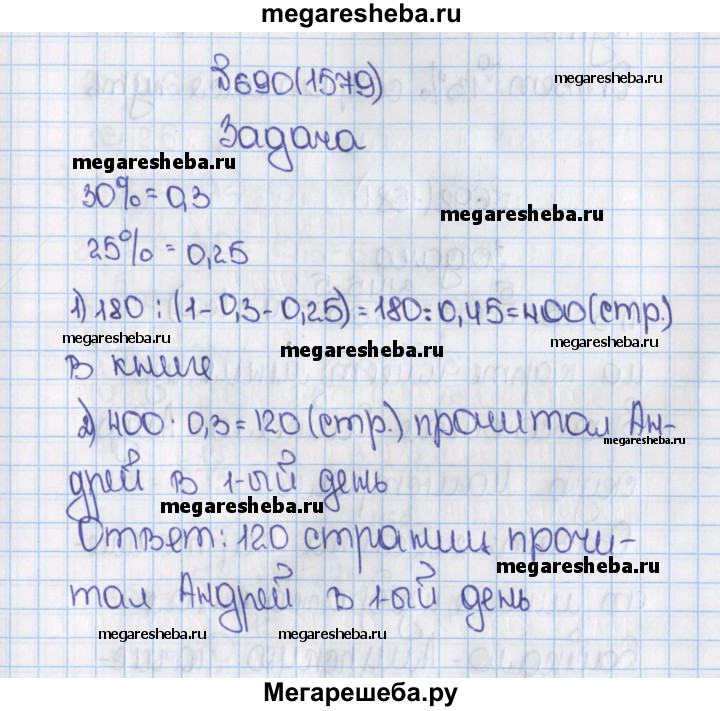 megaresheba.ru
№690(1579)
megaresheba.ru
Задача
megaresheba.ru
30% = 0,3
megaresheba.ru
25% = 0,25
1) 180 : (1-0,3-0,25) = 180:0,45=400(стр.)
megaresheba.ru
megaresheba.ru
megaresheba.ru
в книге
2) 400 · 0,3=120 (стр.) прочитал Ан-
megaresheba.ru
дрей в 1-ый день
megaresheba.ru
Ответ: 120 страниц прочи-
megaresheba.ru
тал Андрей в 1-ый день
megaresheba.ru
megaresheba.ru
Мегарешеба.ру